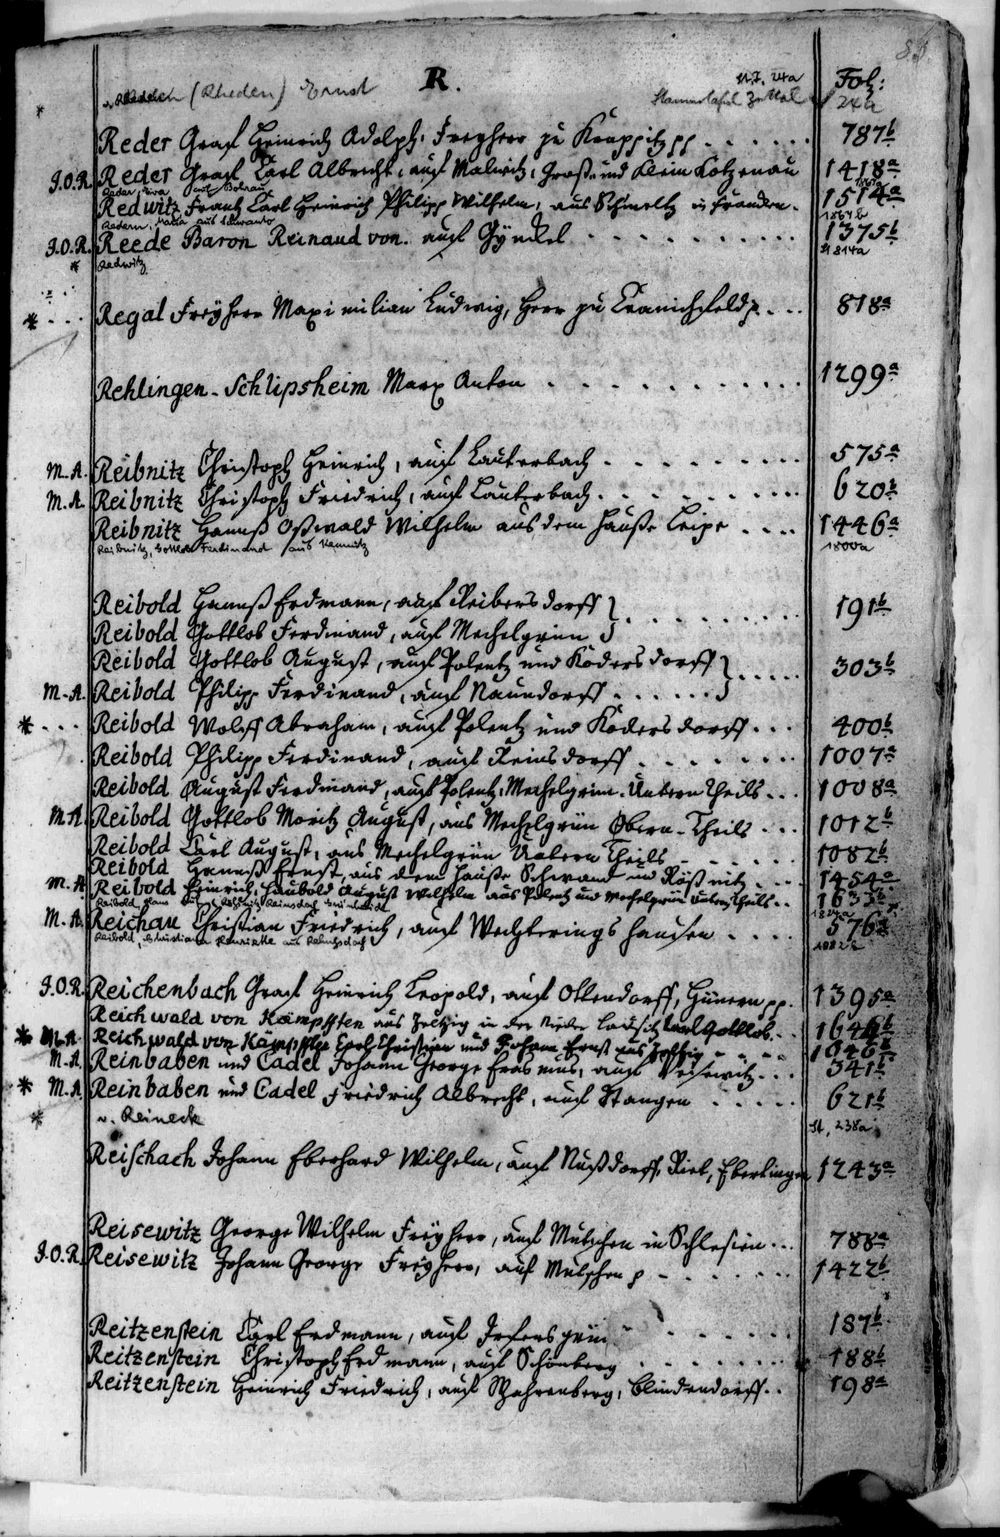 R.
(Rheden) Ernst
Stammtafel Zettel
St. I. 24a
Fol:
24a
Reder Graf Heinrich Adolph, Freyherr zu Krappitz pp. 787b
J.O.R. Reder Graf Carl Albrecht, auf Malwitz, Groß- und Klein Kotzenau 1418a
Redwitz Frantz Carl Heinrich Philipp Wilhelm, aus Schmeltz in Francken. 1514a
1864b
J.O.R. Reede Baron Reinaud von. auf Gynckel 1375b
* Redwitz St 814a
* Regal Freyherr Maximilian Ludwig, Herr zu Cranichfeld p. 818a
Rehlingen-Schlipsheim Marx Anton 1299a
M.A. Reibnitz Christoph Heinrich, auf Lauterbach 575a
M.A. Reibnitz Christoph Friedrich, auf Lauterbach 620b
Reibnitz Hannß Oßwald Wilhelm aus dem Hauße Leipe 1446a
Reibnitz, Gottlob Ferdinand aus Kemnitz 1800a
Reibold Hannß Erdmann, auf Reibersdorff } 191b
Reibold Gottlob Ferdinand, auf Mechelgrün }
Reibold Gottlob August, auf Polentz undKödersdorff } 303b
M.A. Reibold Philipp Ferdinand, auf Naundorff }
* Reibold Wolff Abraham, auf Polentz und Ködersdorff 400b
Reibold Philipp Ferdinand, auf Reinsdorff 1007a
Reibold August Ferdinand, auf Polentz, Mechelgrün Untern Theils 1008a
M.A. Reibold Gottlob Moritz August, aus Mechelgrün Obern-Theils 1012b
Reibold Carl August, aus Mechelgrün Untern Theils 1082b
Reibold Hannß Ernst, aus dem Hauße Schwand und Rößnitz 1454a
M.A. Reibold Heinrich Haubold August Wilhelm aus Polentz und Mechelgrün Untern Theils
Reibold Hans
M.A. Reichau Christian Friedrich, auf Wechteringshausen 576a
Reibold, Christiana Henriette aus
J.O.R. Reichenbach Graf Heinrich Leopold, auf Ollendorff, Hünern pp. 1395a
Reichwald von Kämpffen aus in der Nieder Lausitz Carl Gottlob 1646b
* M.A. Reichwald von Kämpffen Carl Christian und Johann Ernst aus 1046b
M.A. Reinbaben und Cadel Johann George Erasmus, auf 541b
* M.A. Reinbaben und Cadel Friedrich Albrecht, auf Stangen 621b
* v. Reineck St. 238a
Reischach Johann Eberhard Wilhelm, auf Nußdorff, Riet, Eberdingen 1243a
Reisewitz George Wilhelm Freyherr, auf Mutschen in Schlesien 788a
J.O.R. Reisewitz Johann George Freyherr, auf Mutschen p 1422b
Reitzenstein Carl Erdmann, auf 187b
Reitzenstein Christoph Erdmann, auf Schönberg 188b
Reitzenstein Heinrich Friedrich, auf Blindendorff 198a